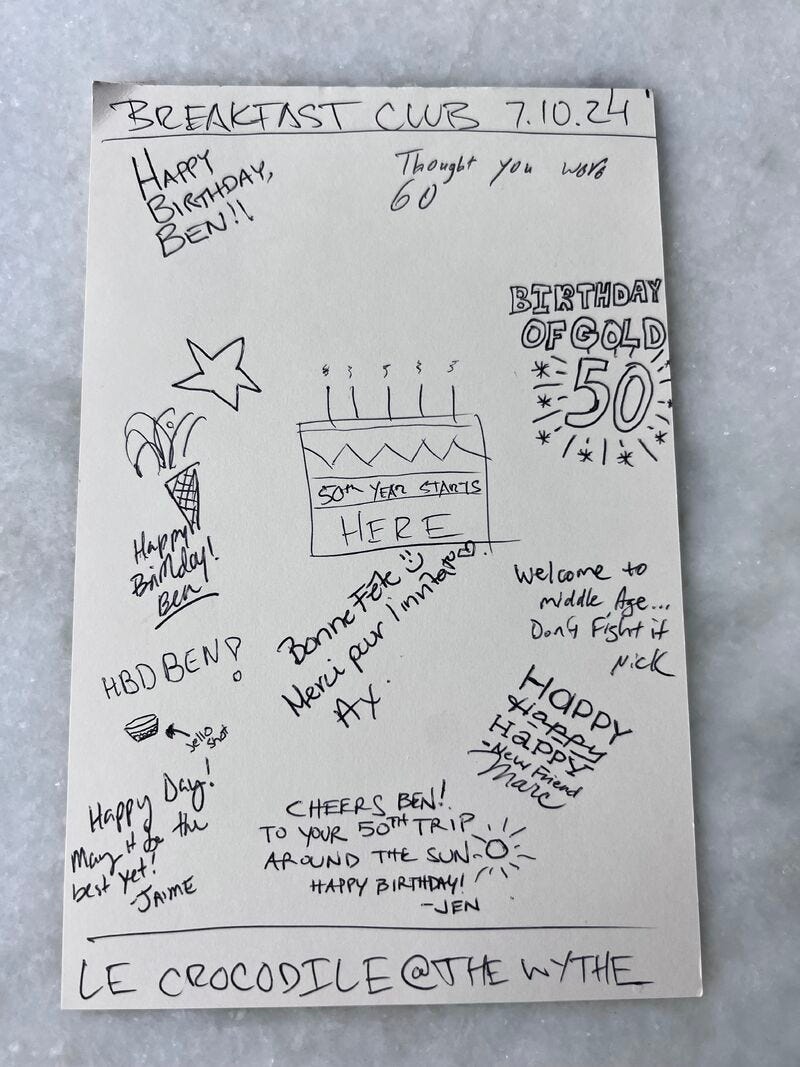 BREAKFAST CLUB 7.10.24
HAPPY
BIRTHDAY,
BEN!!
Thought you were
60
BIRTHDAY
OF GOLD
50
50th YEAR STARTS
HERE
Happy
Birthday!
Ben
Bonne Fête
Merci pour l'invitation
AY.
Welcome to
middle Age...
Don't Fight it
Nick
HBD BEN!
jello
shot
HAPPY
Happy
HAPPY
-New Friend
Marc
Happy Day!
May it be the
best yet!
-JAIME
CHEERS BEN!
TO YOUR 50TH TRIP
AROUND THE SUN
HAPPY BIRTHDAY!
-JEN
LE CROCODILE @ THE WYTHE